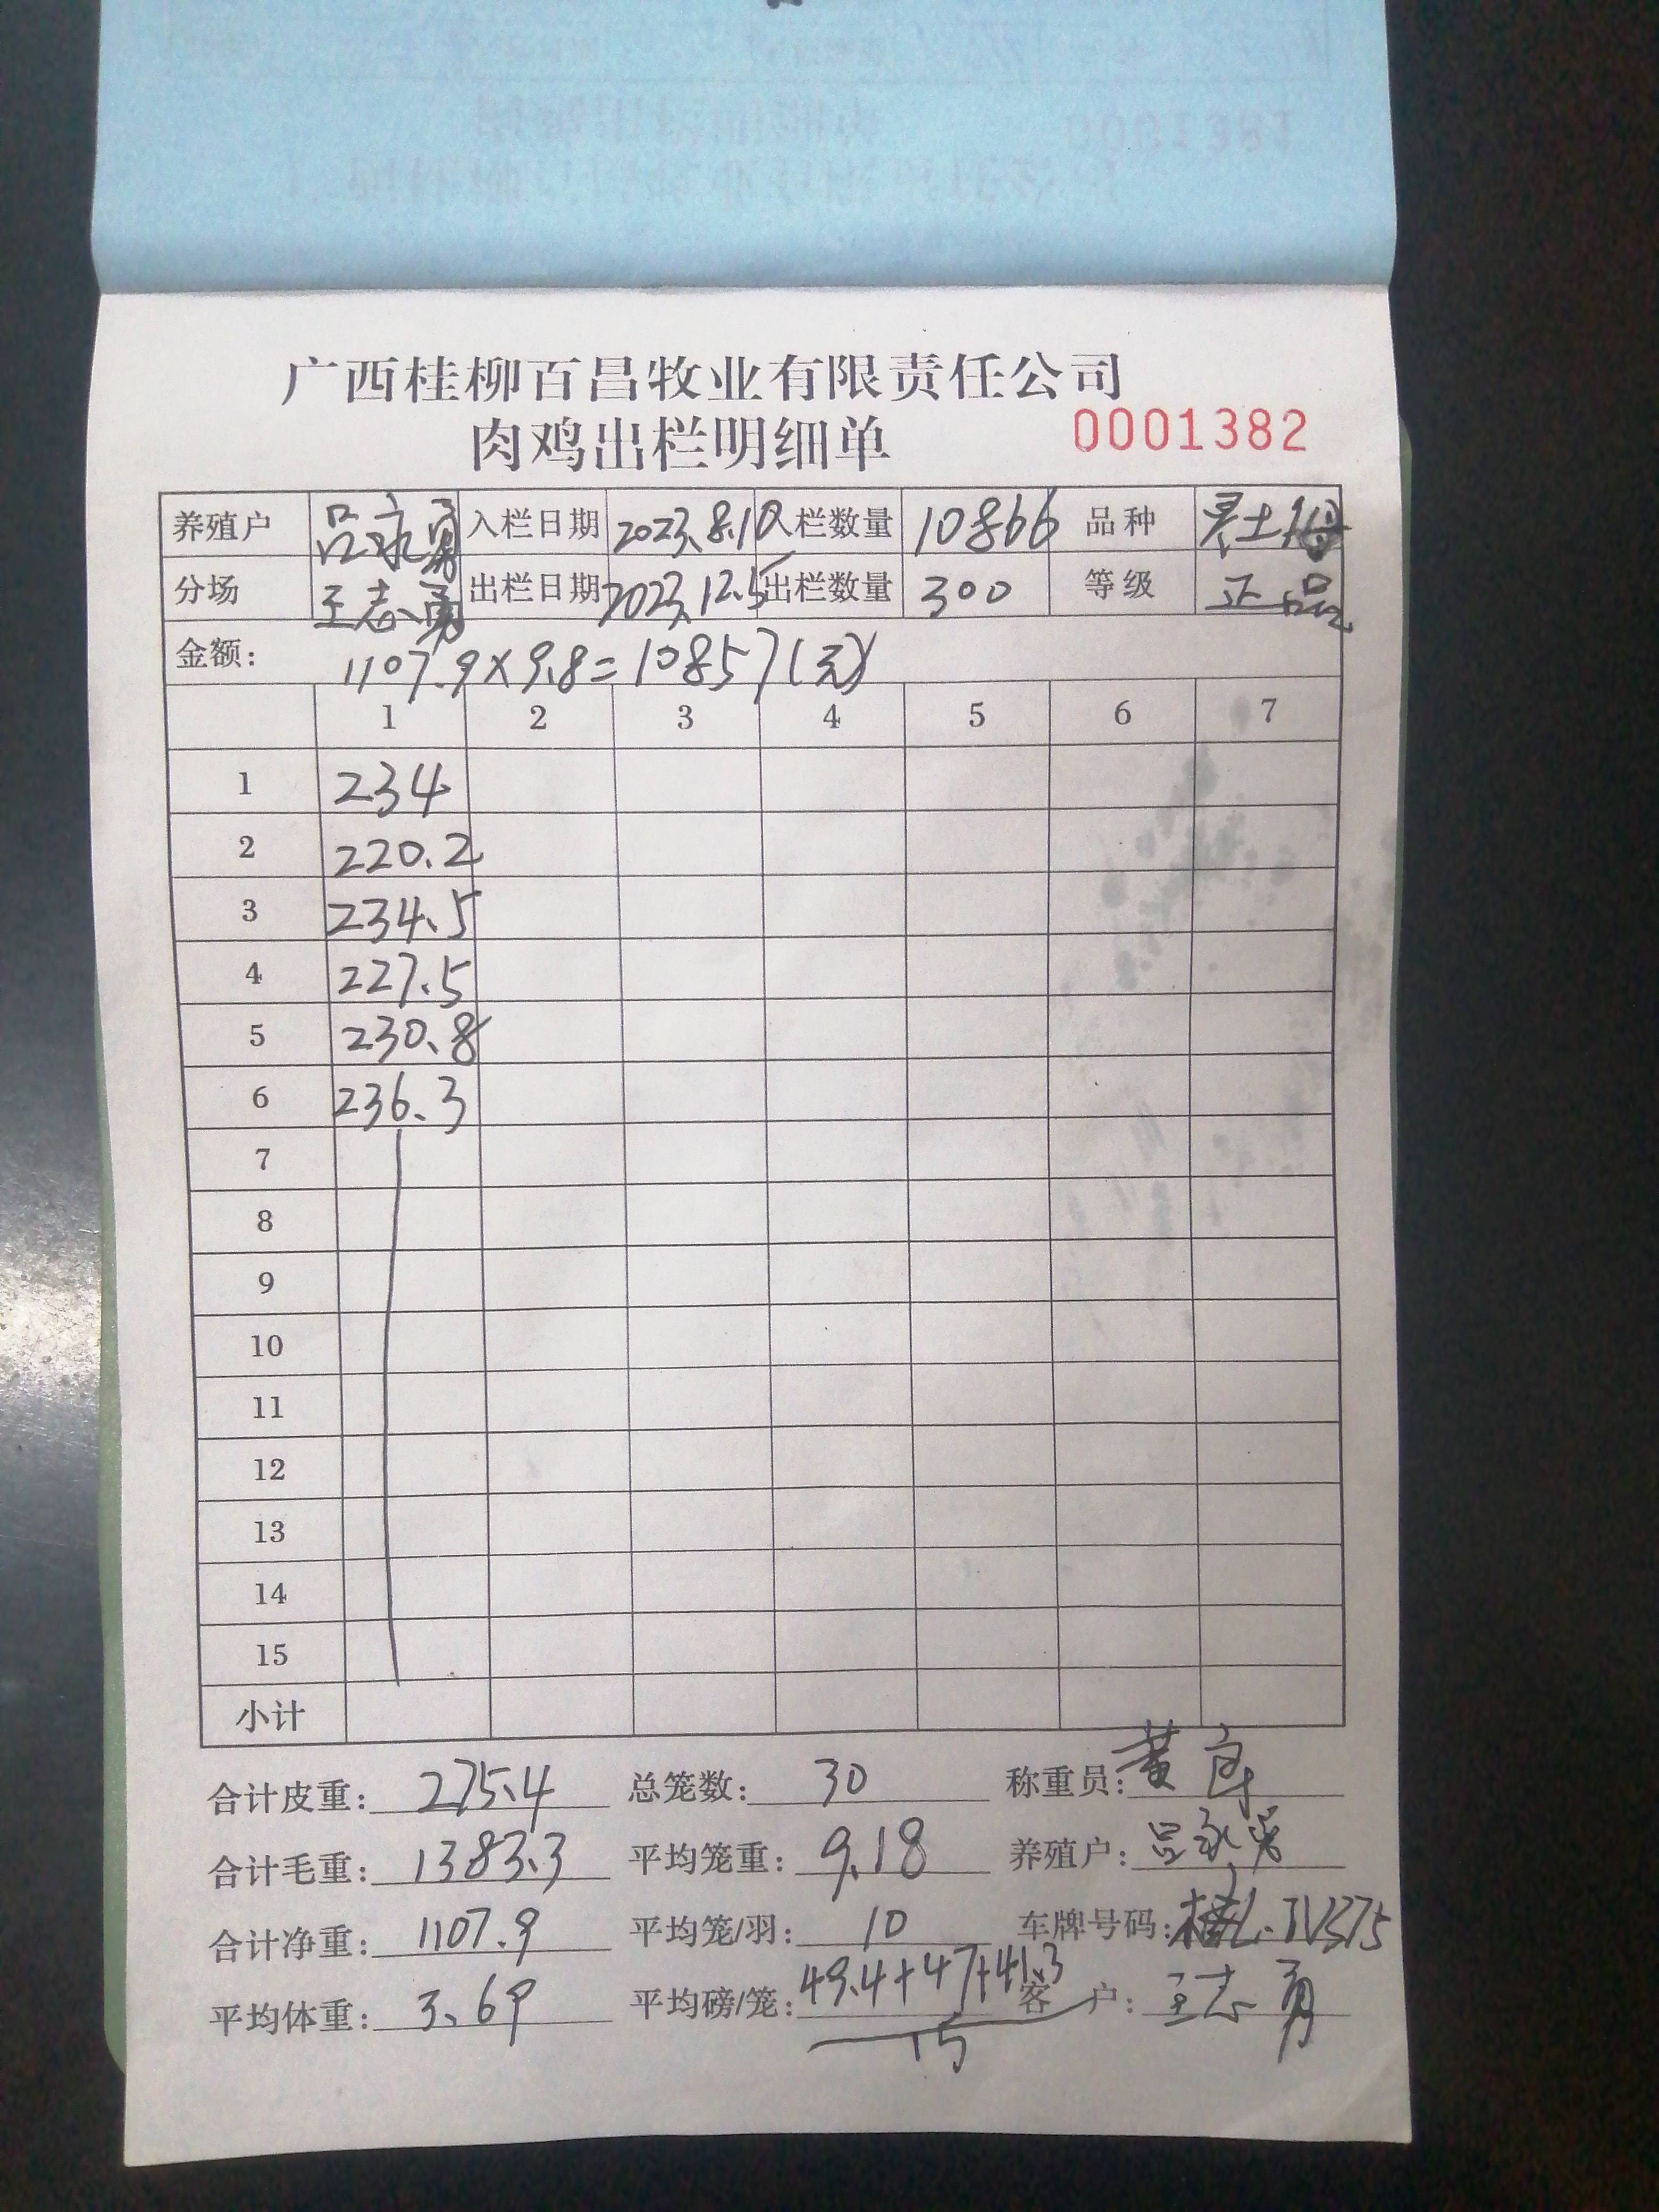 广西桂柳百昌牧业有限责任公司
肉鸡出栏明细单 0001382
养殖户 吕永勇 入栏日期 2023.8.10 入栏数量 10866 品种 土
分场 王志勇 出栏日期 2023.12.5 出栏数量 300 等级 正品
金额: 1107.9×9.8=10857(元)
1 2 3 4 5 6 7
1 234
2 220.2
3 234.5
4 227.5
5 230.8
6 236.3
7
8
9
10
11
12
13
14
15
小计
合计皮重: 275.4 总笼数: 30 称重员: 黄
合计毛重: 1383.3 平均笼重: 9.18 养殖户: 吕永勇
合计净重: 1107.9 平均笼/羽: 10 车牌号码:
平均体重: 3.69 平均磅/笼: 49.4+47+41.3 客户: 王志勇
15